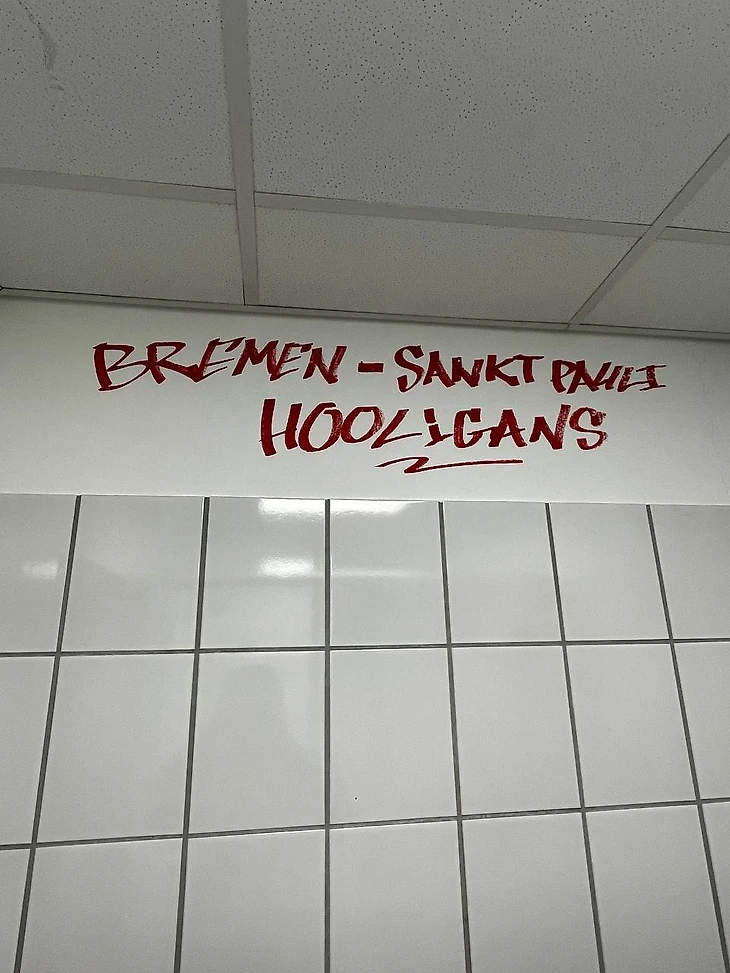 BREMEN - SANKT PAULI
HOOLiGANS